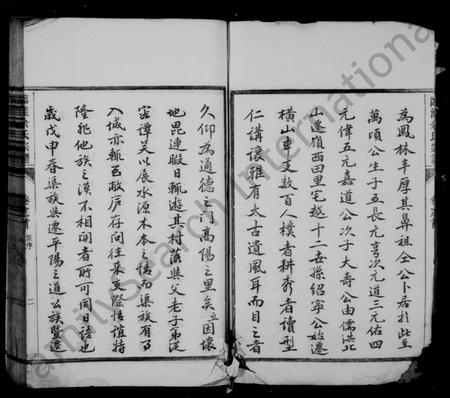 為鳳林丰厚其鼻祖全公卜居於此至
萬頃公生子五長元亨次元道三元佑四
元偉五元嘉道公次子大壽公由儒洪北
山遷嶺西田里宅越十二世孫紹寧公始遷
橫山車支數百人樸者耕秀者讀型
仁講讓雅有太古遺風耳而目之者
久仰為通德之門高陽之里矣立因懷
地毘連暇日輒遊其村落與父老子弟從
容譚笑以展水源木本之情而渠族有事
入城亦輒至敝廬存問往來交際情誼特
隆視他族之漠不相聞者所可同日語也
歲戊申春渠族與遷平陽之道公族暨遷
FamilySearch International